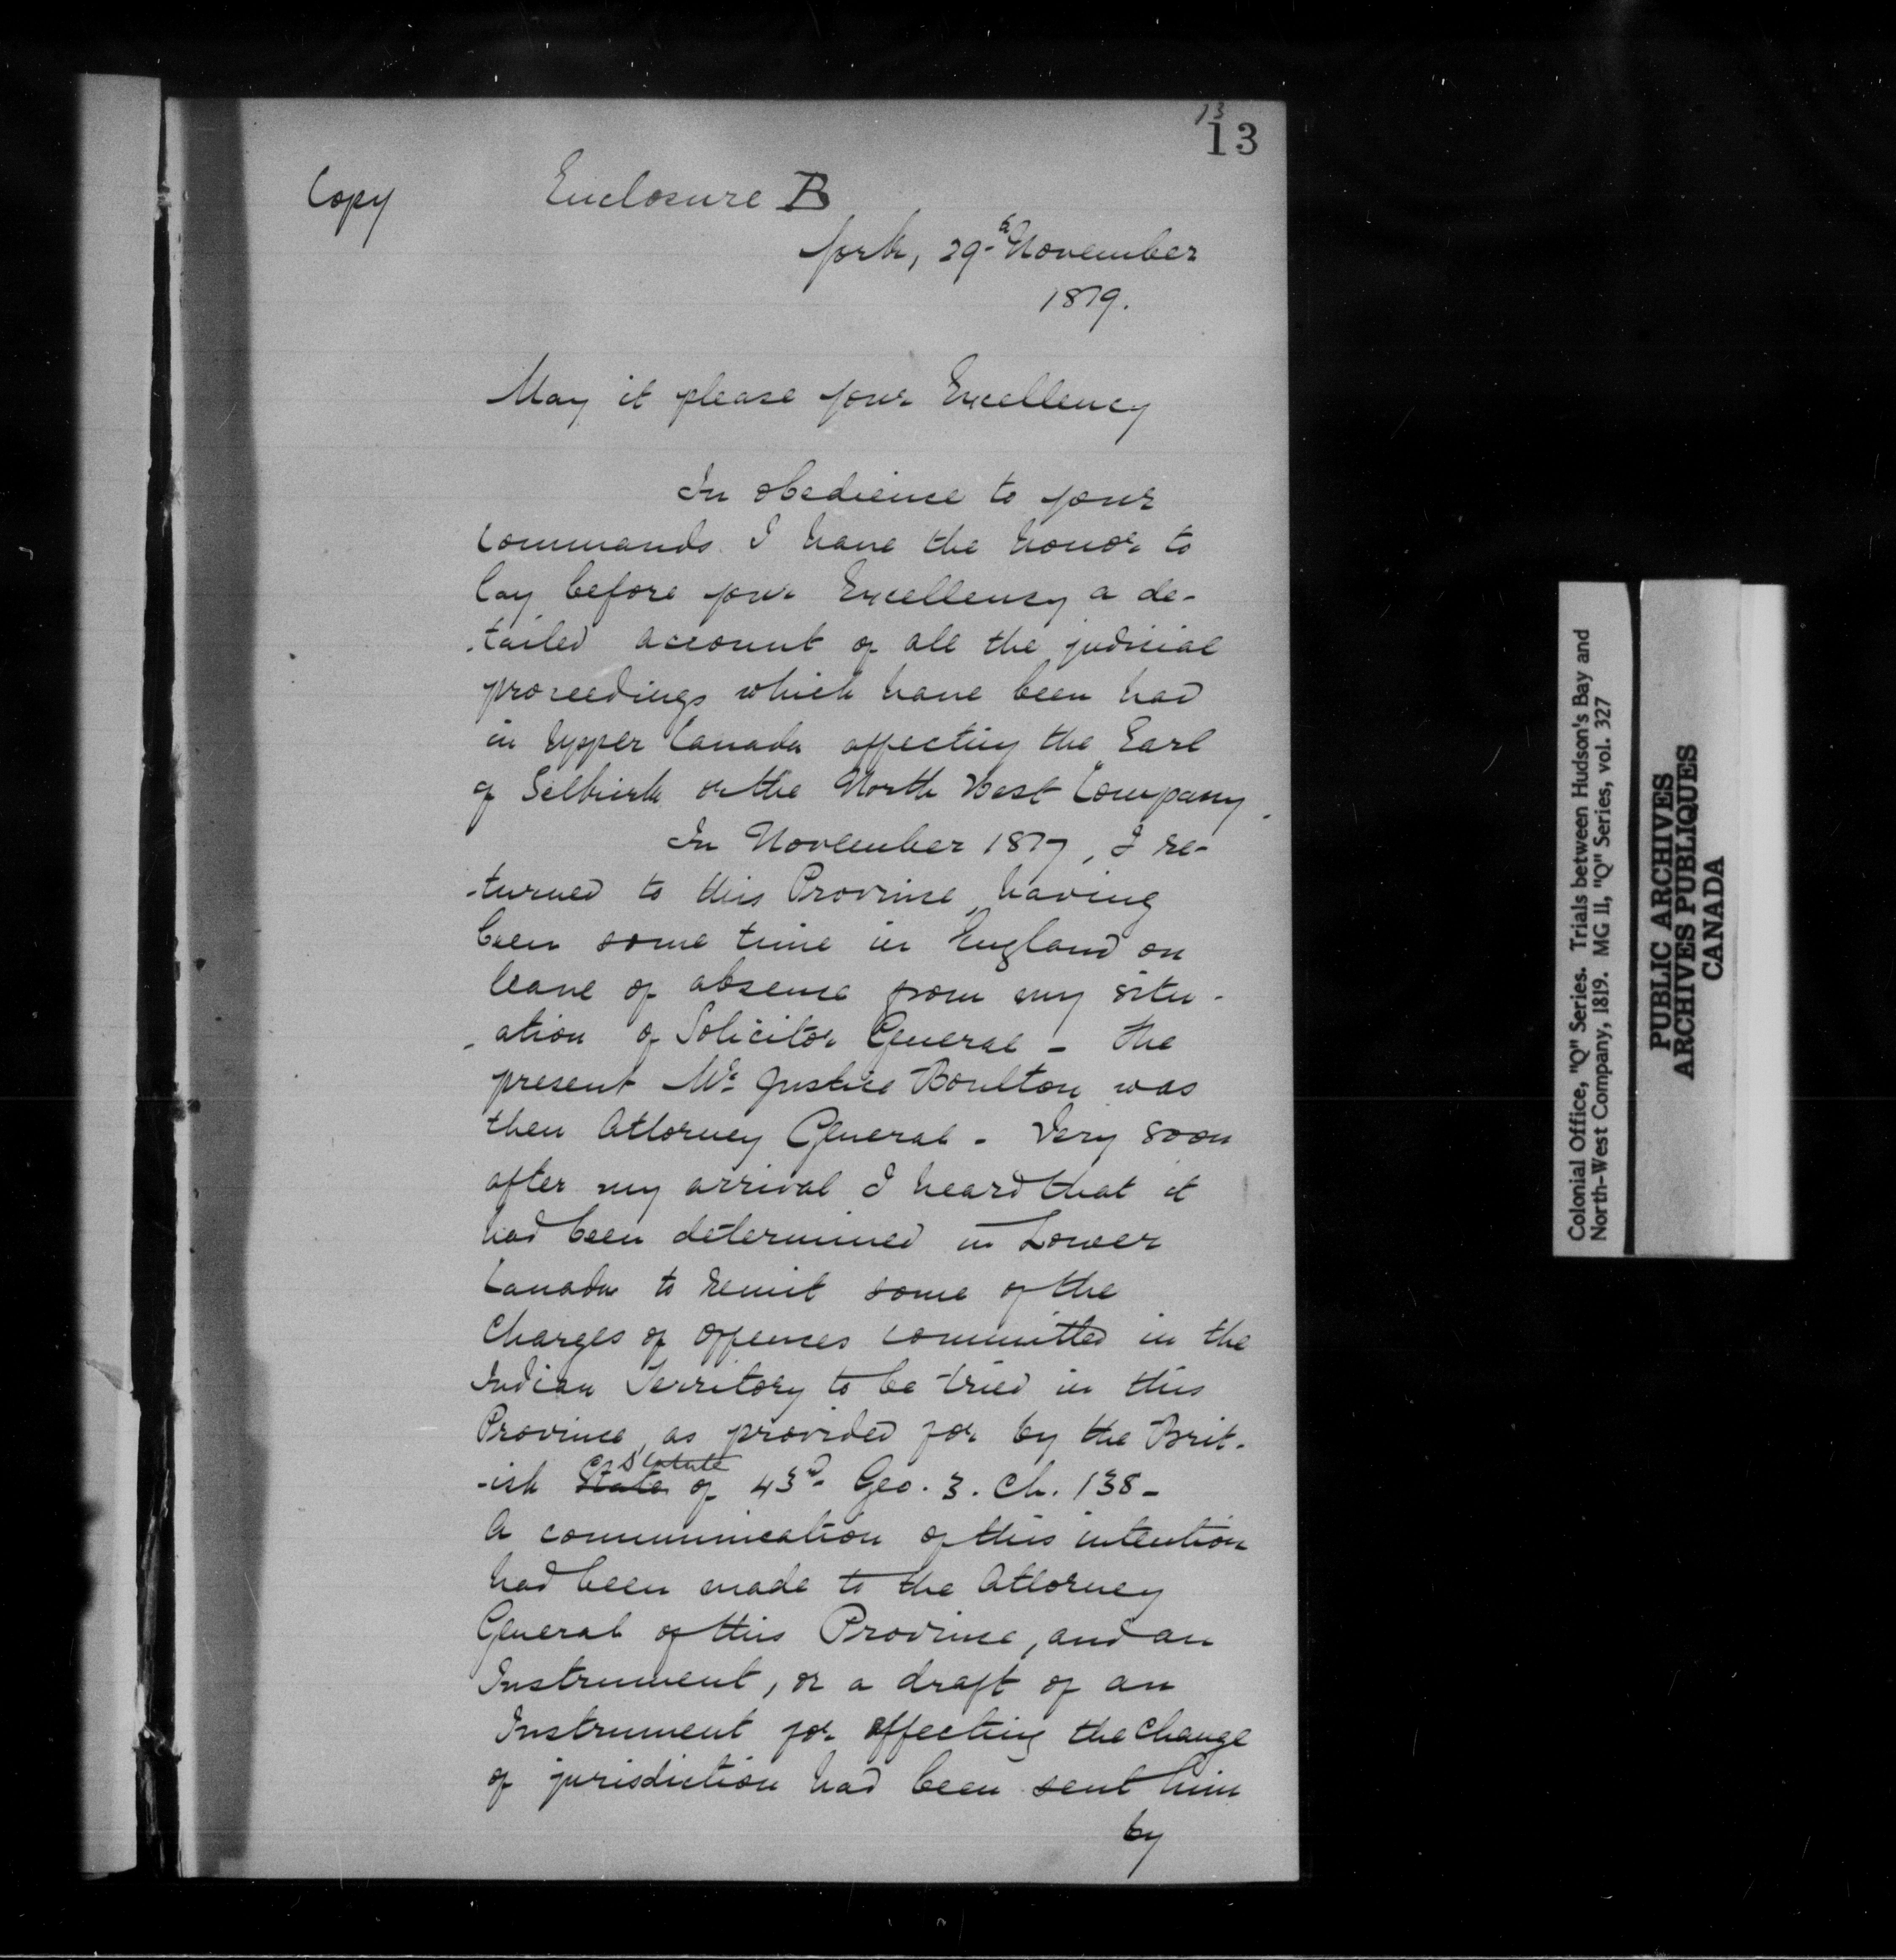 13
13
Copy
Enclosure B
York, 29th November
1819.
May it please your Excellency
In obedience to your
commands I have the honor to
lay before your Excellency a de-
-tailed account of all the judicial
proceedings which have been had
in Upper Canada affecting the Earl
of Selkirk or the North West Company.
In November 1817, I re-
-turned to this Province, having
been some time in England on
leave of absence from my situ-
-ation of Solicitor General - the
present Mr. Justice Boulton was
then Attorney General - Very soon
after my arrival I heard that it
had been determined in Lower
Canada to remit some of the
Charges of Offences committed in the
Indian Territory to be tried in this
Province, as provided for by the Brit-
Statute
-ish State of 43d. Geo. 3. Ch. 138-
A communication of this intention
had been made to the Attorney
General of this Province, and an
Instrument, or a draft of an
Instrument for effecting the Change
of jurisdiction had been sent him
by
Colonial Office, "Q" Series. Trials between Hudson's Bay and
North-West Company, 1819. MG 11, "Q" Series, vol. 327
PUBLIC ARCHIVES
ARCHIVES PUBLIQUES
CANADA